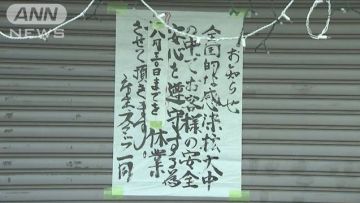 ANN
NEWS
お知らせ
全国的な感染拡大中
の中でお客様の安全
安心を遵守する為
八月三十日までを休業
させて頂きます。
スタッフ一同